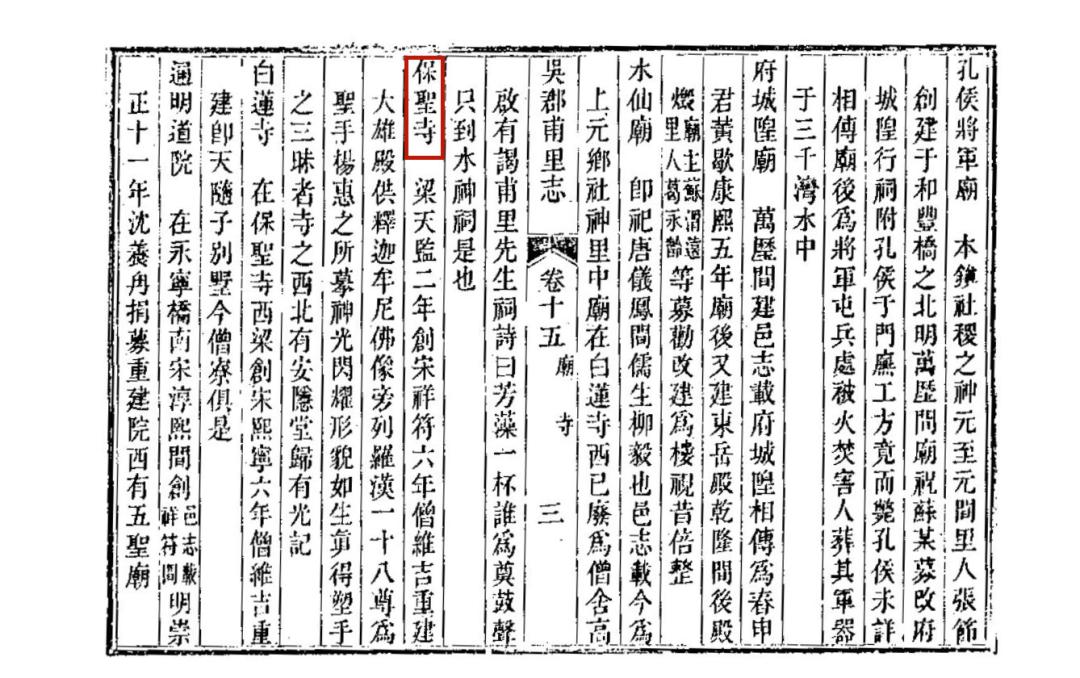 孔侯將軍廟　本鎮社稷之神元至元間里人張節
創建于和豐橋之北明萬曆間廟祝蘇某募改府
城隍行祠附孔侯于門廡工方竟而斃孔侯未詳
相傳廟後爲將軍屯兵處被火焚害人葬其軍器
于三千灣水中
府城隍廟　萬曆間建邑志載府城隍相傳爲春申
君黃歇康熙五年廟後又建東岳殿乾隆間後殿
燬廟主蘇渭遠里人葛永齡等募勸改建爲樓視昔倍整
水仙廟　卽祀唐儀鳳間儒生柳毅也邑志載今爲
上元鄉社神里中廟在白蓮寺西已廢爲僧舍高
吳郡甫里志　卷十五　廟寺　三
啟有謁甫里先生祠詩曰芳藻一杯誰爲奠鼓聲
只到水神祠是也
保聖寺　梁天監二年創宋祥符六年僧維吉重建
大雄殿供釋迦牟尼佛像旁列羅漢一十八尊爲
聖手楊惠之所摹神光閃耀形貌如生眞得塑手
之三昧者寺之西北有安隱堂歸有光記
白蓮寺　在保聖寺西梁創宋熙寧六年僧維吉重
建卽天隨子別墅今僧寮俱是
通明道院　在永寧橋南宋淳熙間創邑志載祥符間明崇
正十一年沈養冉捐募重建院西有五聖廟